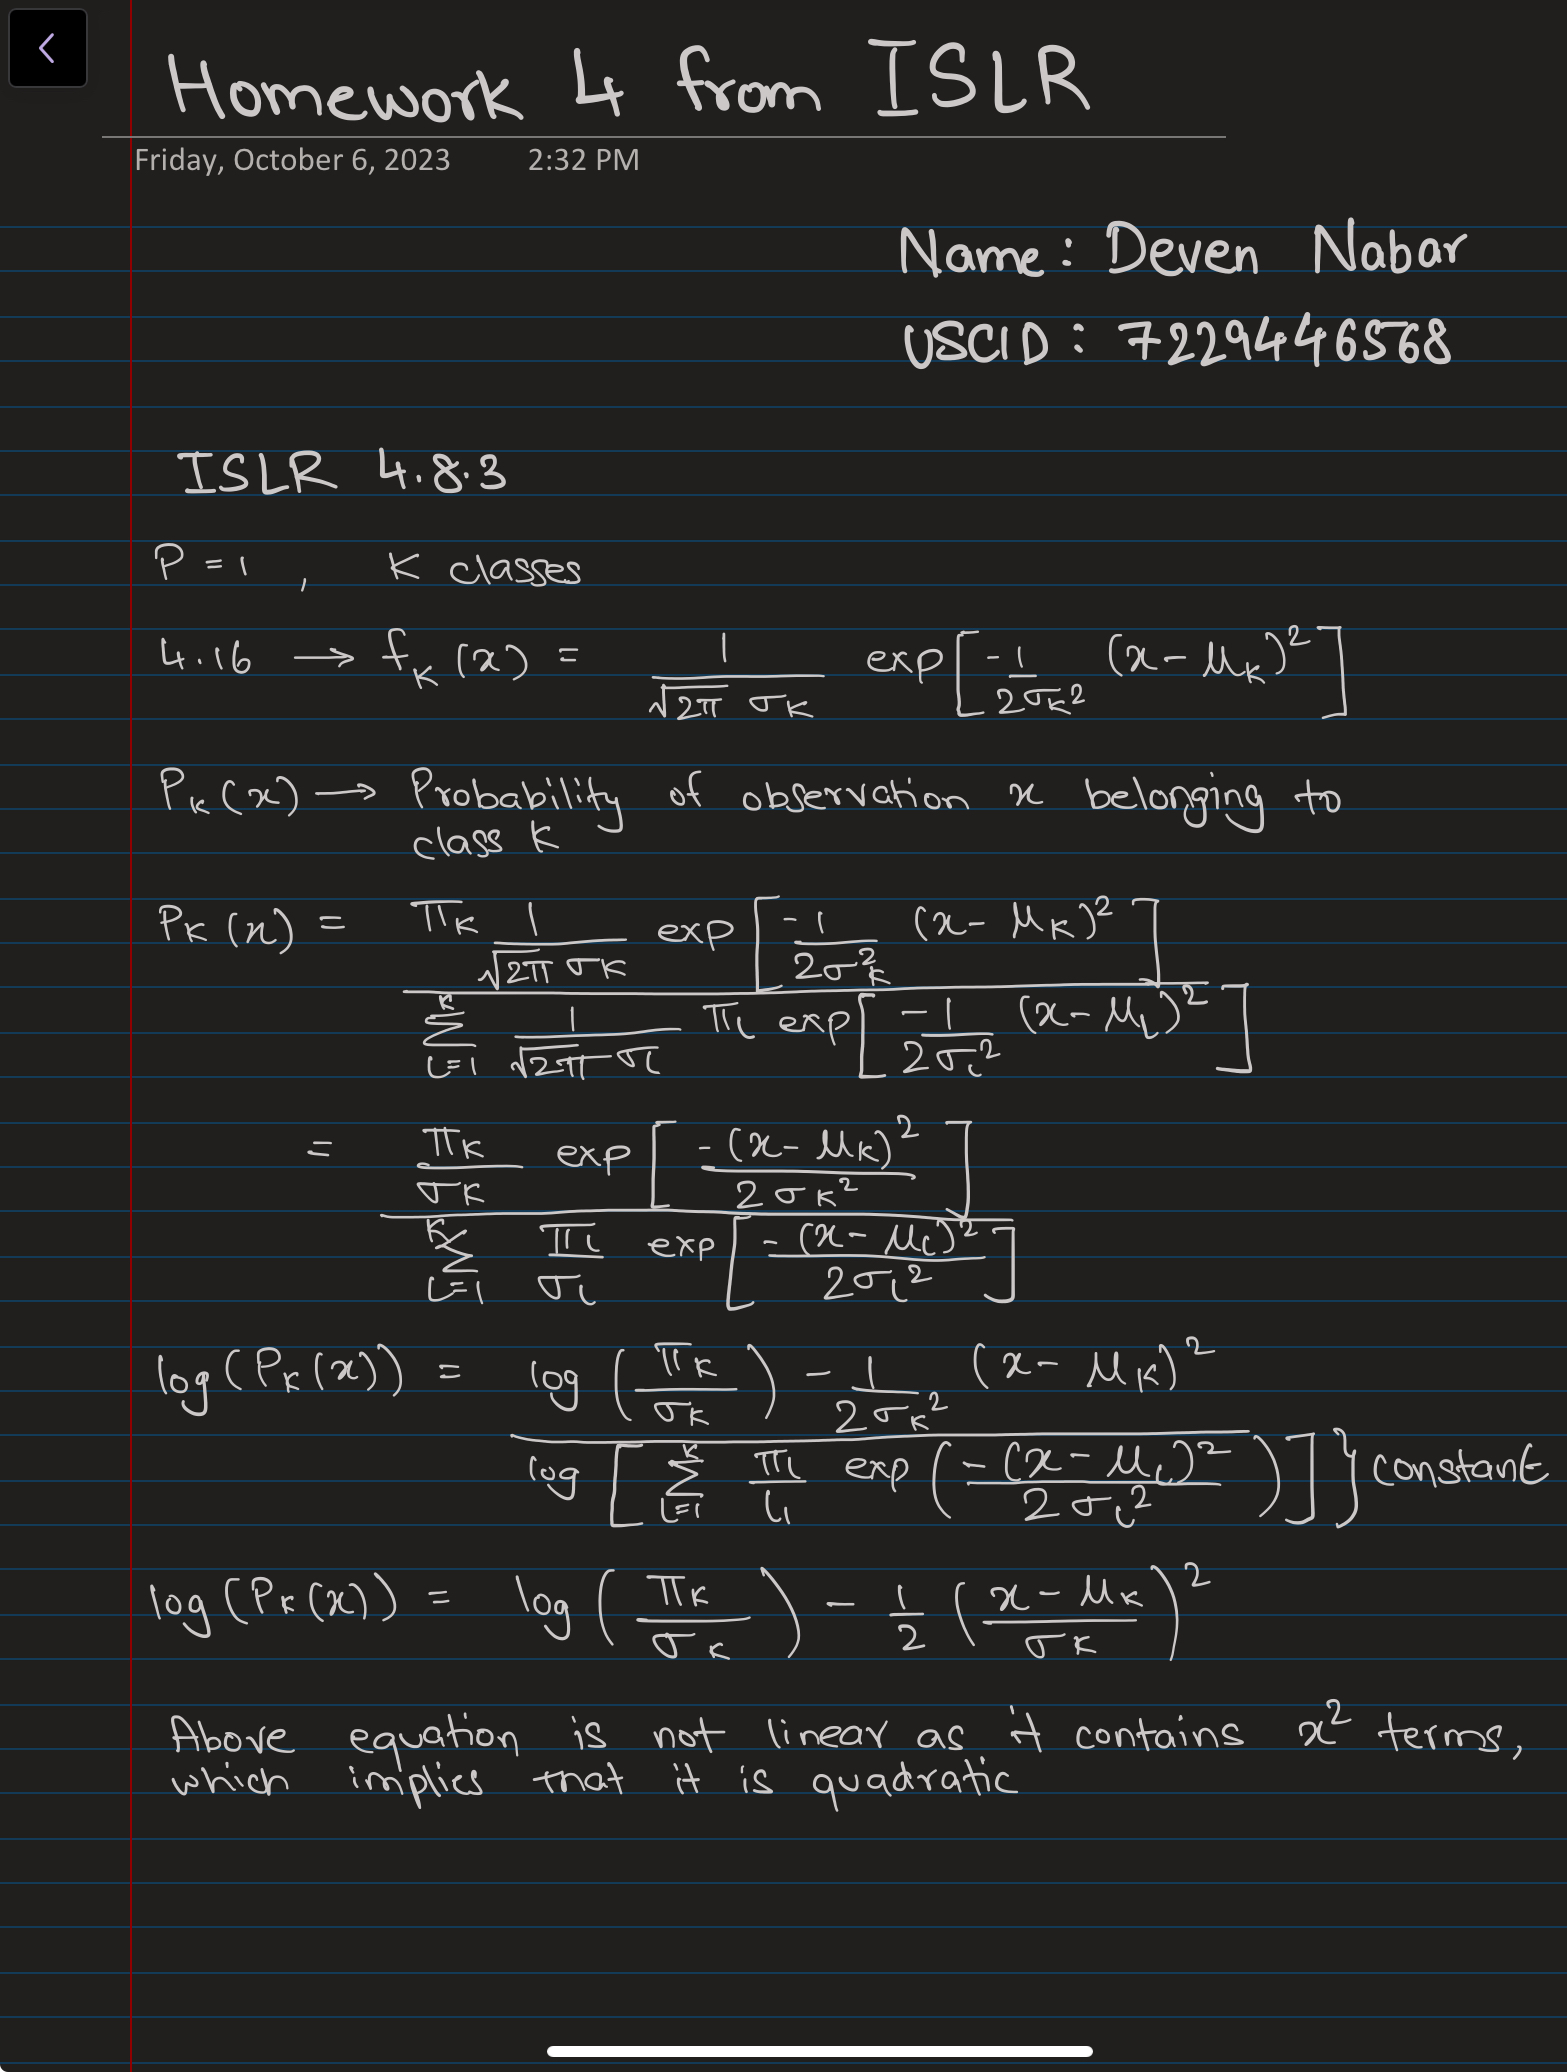 Homework 4 from ISLR
Friday, October 6, 2023 2:32 PM
Name: Deven Nabar
USCID: 7229446568
ISLR 4.8.3
P = 1 , K classes
4.16 → f_K (x) = 1 / (√2π σ_K) exp[ -1/(2σ_K²) (x-μ_K)² ]
P_K(x) → Probability of observation x belonging to
class K
P_K (x) = π_K 1/(√2π σ_K) exp[ -1/(2σ²_K) (x-μ_K)² ] / Σ_{l=1}^{K} 1/(√2π σ_l) π_l exp[ -1/(2σ_l²) (x-μ_l)² ]
= π_K/σ_K exp[ -(x-μ_K)²/(2σ_K²) ] / Σ_{l=1}^{K} π_l/σ_l exp[ -(x-μ_l)²/(2σ_l²) ]
log(P_K(x)) = log(π_K/σ_K) - 1/(2σ_K²) (x-μ_K)² / log[ Σ_{l=1}^{K} π_l/l_l exp( -(x-μ_l)²/(2σ_l²) ) ] } constant
log(P_K(x)) = log(π_K/σ_K) - 1/2 ( (x-μ_K)/σ_K )²
Above equation is not linear as it contains x² terms,
which implies that it is quadratic